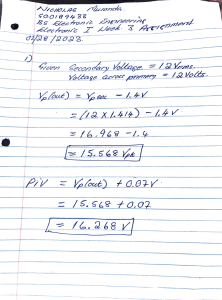 NICHOLAS Muranda
BS Electronic Engineering
Electronic I Week 3 Assignment
02/28/2023.
1)
Given Secondary Voltage = 12Vrms.
Voltage across primary = 12Volts.
Vp(out) = Vpsec - 1.4V
= (12 X 1.414) - 1.4V
= 16.968 - 1.4
= 15.568 Vpk
PIV = Vp(out) + 0.07V
= 15.568 + 0.07
= 16.268 V